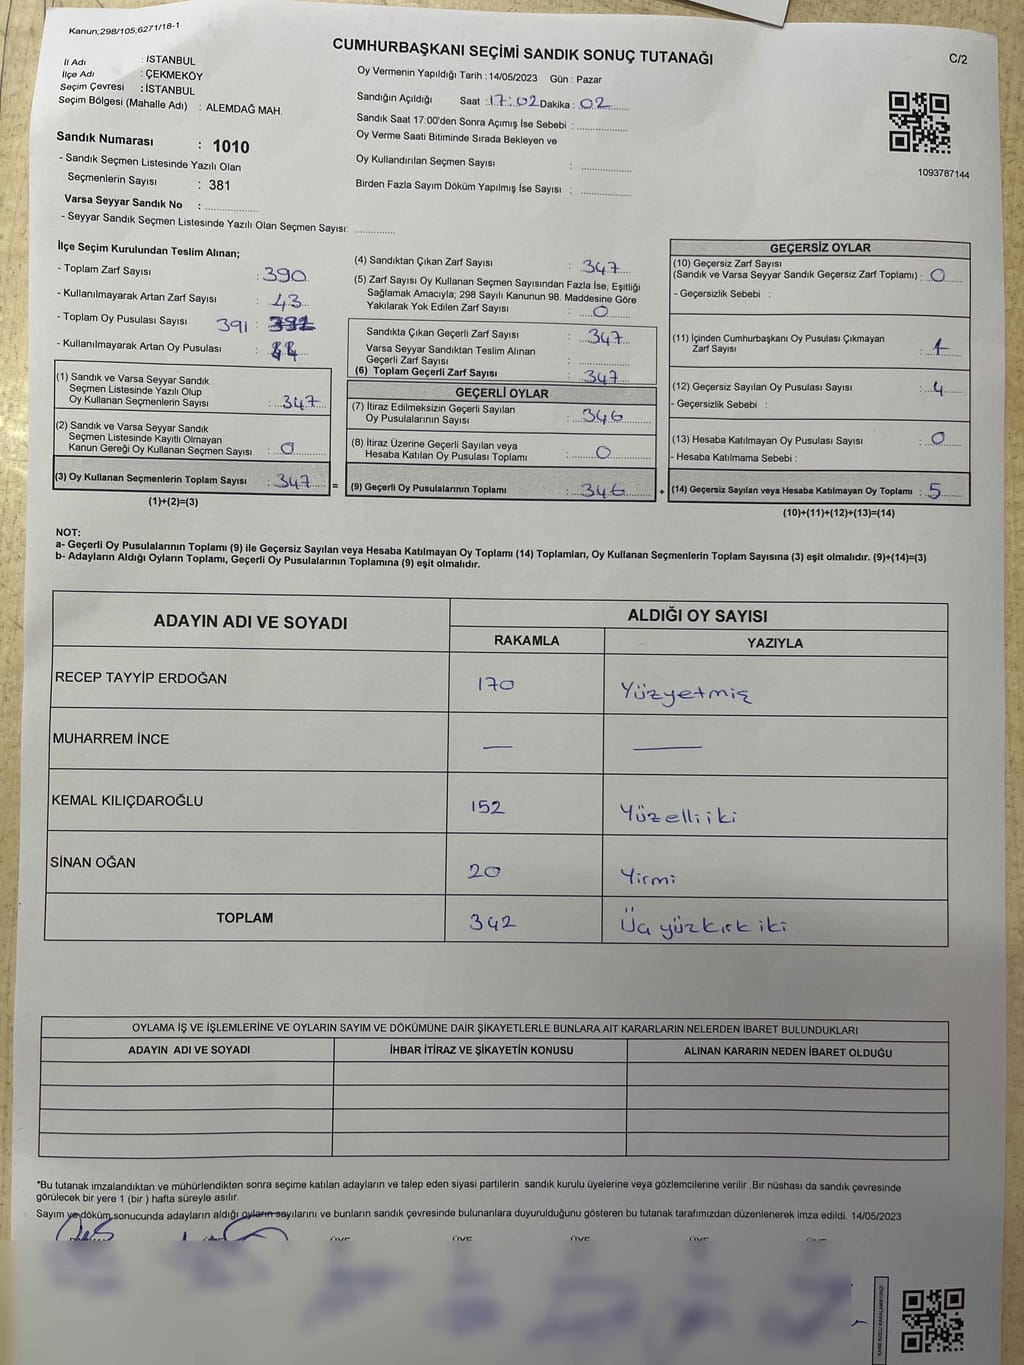 Kanun;298/105;6271/18-1
CUMHURBAŞKANI SEÇİMİ SANDIK SONUÇ TUTANAĞI
C/2
İl Adı : İSTANBUL
İlçe Adı : ÇEKMEKÖY
Seçim Çevresi : İSTANBUL
Seçim Bölgesi (Mahalle Adı) : ALEMDAĞ MAH.
Oy Vermenin Yapıldığı Tarih : 14/05/2023 Gün : Pazar
Sandığın Açıldığı Saat : 17:02 Dakika : 02
Sandık Saat 17:00'den Sonra Açımış İse Sebebi :
Oy Verme Saati Bitiminde Sırada Bekleyen ve
Oy Kullandırılan Seçmen Sayısı :
Birden Fazla Sayım Döküm Yapılmış İse Sayısı :
1093787144
Sandık Numarası : 1010
- Sandık Seçmen Listesinde Yazılı Olan
Seçmenlerin Sayısı : 381
Varsa Seyyar Sandık No :
- Seyyar Sandık Seçmen Listesinde Yazılı Olan Seçmen Sayısı:
İlçe Seçim Kurulundan Teslim Alınan;
- Toplam Zarf Sayısı : 390
- Kullanılmayarak Artan Zarf Sayısı : 43
- Toplam Oy Pusulası Sayısı 391 :
- Kullanılmayarak Artan Oy Pusulası :
(1) Sandık ve Varsa Seyyar Sandık
Seçmen Listesinde Yazılı Olup
Oy Kullanan Seçmenlerin Sayısı : 347
(2) Sandık ve Varsa Seyyar Sandık
Seçmen Listesinde Kayıtlı Olmayan
Kanun Gereği Oy Kullanan Seçmen Sayısı : 0
(3) Oy Kullanan Seçmenlerin Toplam Sayısı : 347 =
(1)+(2)=(3)
(4) Sandıktan Çıkan Zarf Sayısı : 347
(5) Zarf Sayısı Oy Kullanan Seçmen Sayısından Fazla İse, Eşitliği
Sağlamak Amacıyla; 298 Sayılı Kanunun 98. Maddesine Göre
Yakılarak Yok Edilen Zarf Sayısı : 0
Sandıkta Çıkan Geçerli Zarf Sayısı : 347
Varsa Seyyar Sandıktan Teslim Alınan
Geçerli Zarf Sayısı :
(6) Toplam Geçerli Zarf Sayısı : 347
GEÇERLİ OYLAR
(7) İtiraz Edilmeksizin Geçerli Sayılan
Oy Pusulalarının Sayısı : 346
(8) İtiraz Üzerine Geçerli Sayılan veya
Hesaba Katılan Oy Pusulası Toplamı : 0
(9) Geçerli Oy Pusulalarının Toplamı : 346 +
GEÇERSİZ OYLAR
(10) Geçersiz Zarf Sayısı
(Sandık ve Varsa Seyyar Sandık Geçersiz Zarf Toplamı) : 0
- Geçersizlik Sebebi :
(11) İçinden Cumhurbaşkanı Oy Pusulası Çıkmayan
Zarf Sayısı : 1
(12) Geçersiz Sayılan Oy Pusulası Sayısı : 4
- Geçersizlik Sebebi :
(13) Hesaba Katılmayan Oy Pusulası Sayısı : 0
- Hesaba Katılmama Sebebi :
(14) Geçersiz Sayılan veya Hesaba Katılmayan Oy Toplamı : 5
(10)+(11)+(12)+(13)=(14)
NOT:
a- Geçerli Oy Pusulalarının Toplamı (9) ile Geçersiz Sayılan veya Hesaba Katılmayan Oy Toplamı (14) Toplamları, Oy Kullanan Seçmenlerin Toplam Sayısına (3) eşit olmalıdır. (9)+(14)=(3)
b- Adayların Aldığı Oyların Toplamı, Geçerli Oy Pusulalarının Toplamına (9) eşit olmalıdır.
ADAYIN ADI VE SOYADI ALDIĞI OY SAYISI
RAKAMLA YAZIYLA
RECEP TAYYİP ERDOĞAN 170 Yüzyetmiş
MUHARREM İNCE — —
KEMAL KILIÇDAROĞLU 152 Yüzelliiki
SİNAN OĞAN 20 Yirmi
TOPLAM 342 Üç yüzkırk iki
OYLAMA İŞ VE İŞLEMLERİNE VE OYLARIN SAYIM VE DÖKÜMÜNE DAİR ŞİKAYETLERLE BUNLARA AİT KARARLARIN NELERDEN İBARET BULUNDUKLARI
ADAYIN ADI VE SOYADI İHBAR İTİRAZ VE ŞİKAYETİN KONUSU ALINAN KARARIN NEDEN İBARET OLDUĞU
*Bu tutanak imzalandıktan ve mühürlendikten sonra seçime katılan adayların ve talep eden siyasi partilerin sandık kurulu üyelerine veya gözlemcilerine verilir .Bir nüshası da sandık çevresinde
görülecek bir yere 1 (bir ) hafta süreyle asılır.
Sayım ve döküm sonucunda adayların aldığı oyların sayılarını ve bunların sandık çevresinde bulunanlara duyurulduğunu gösteren bu tutanak tarafımızdan düzenlenerek imza edildi. 14/05/2023
ÜYE ÜYE ÜYE ÜYE ÜYE